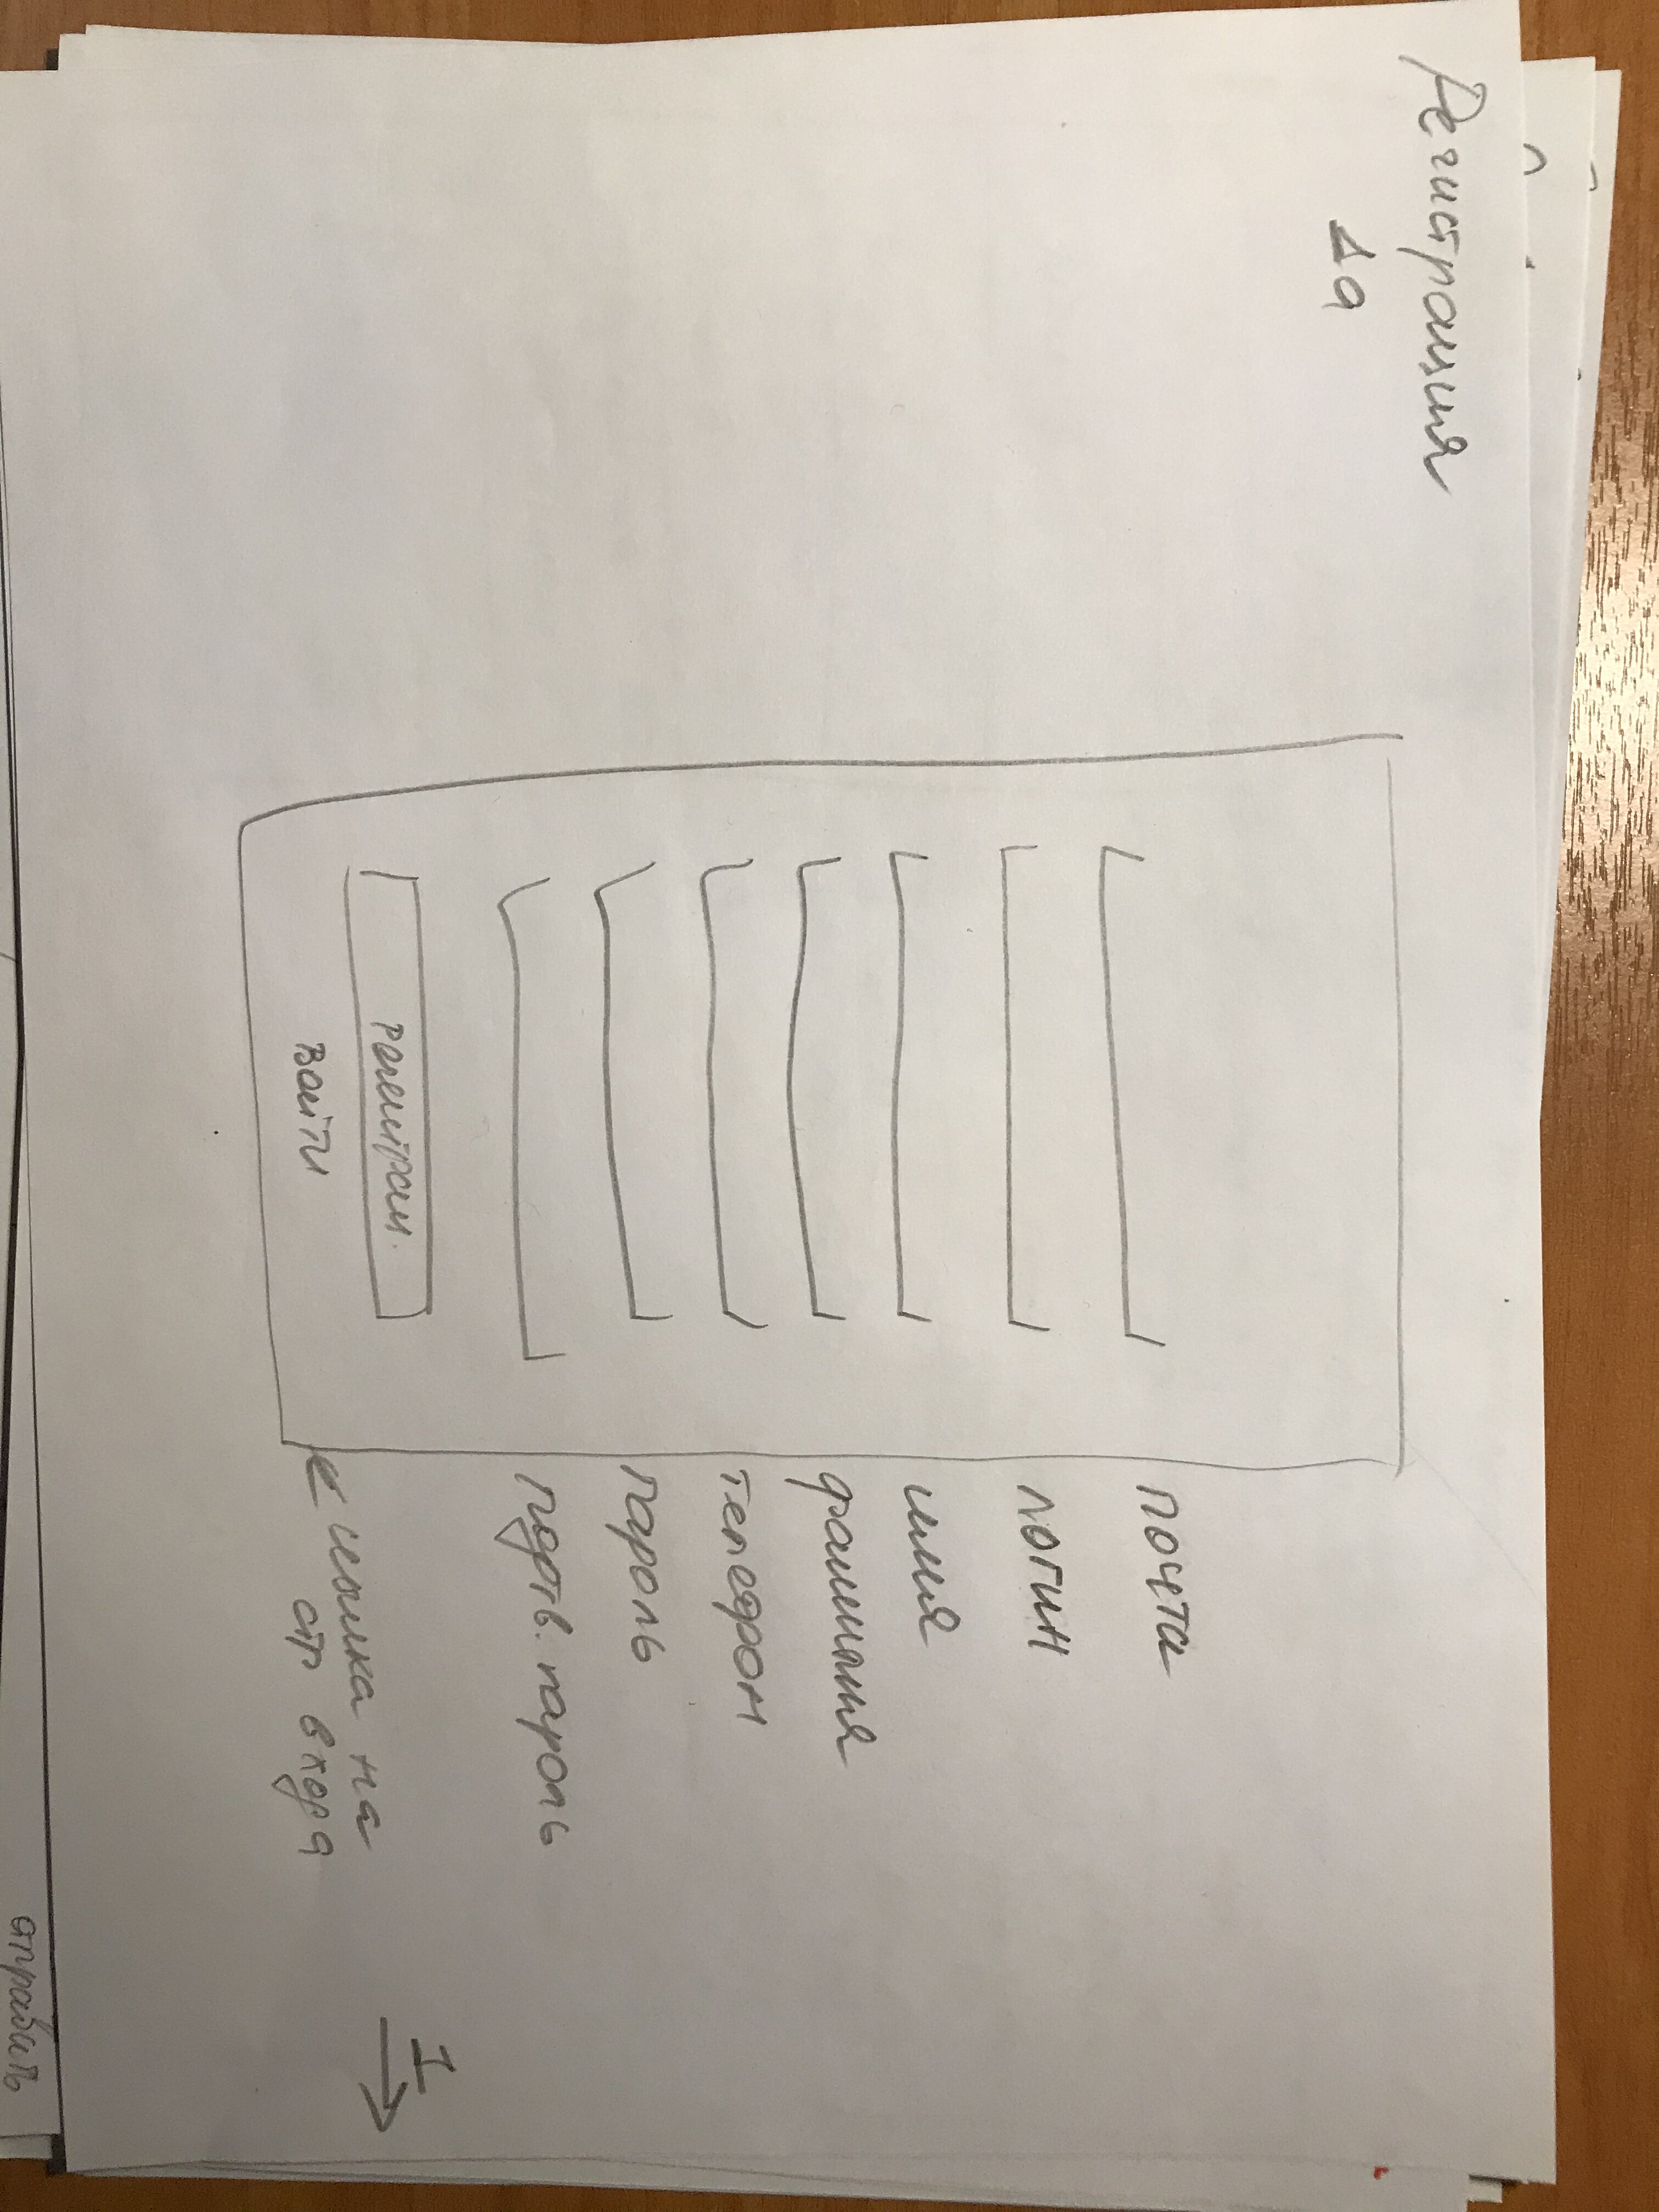 Регистрация
1а
почта
логин
имя
фамилия
телефон
пароль
подтв. пароль
регистрац.
войти
ссылка на
стр входа
1
отправить